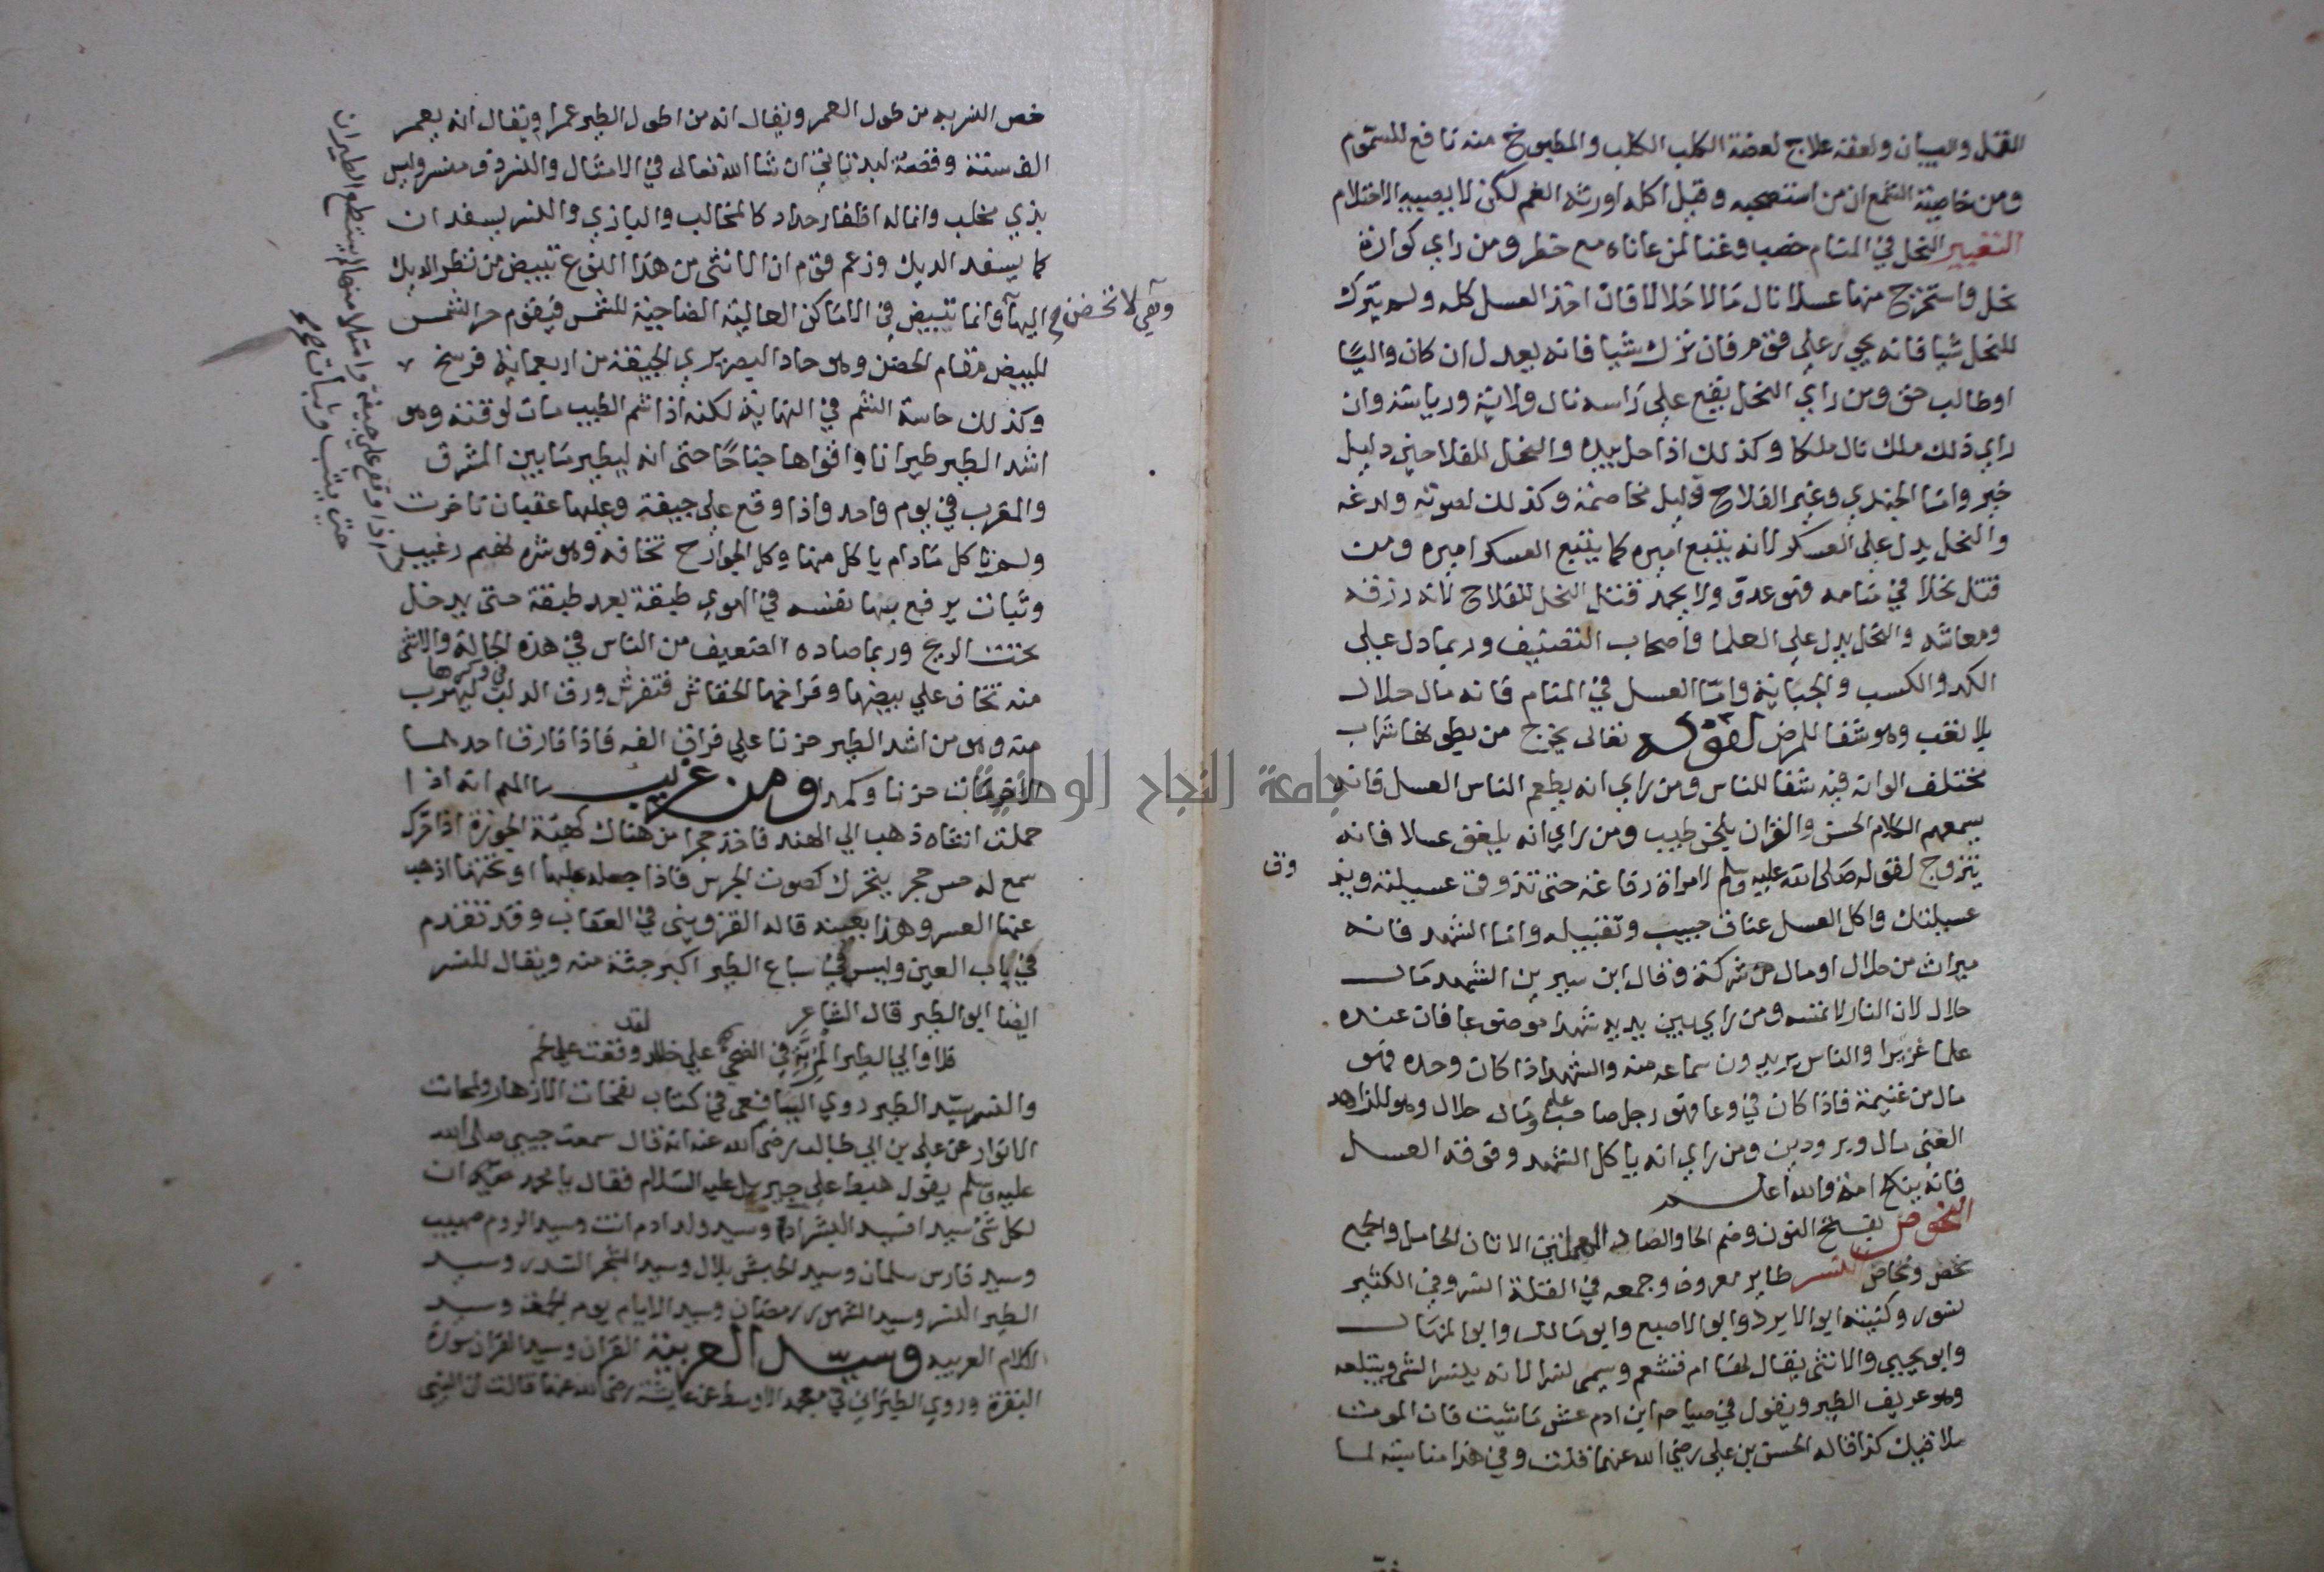 للقمل والصيبان ولعقه علاج لعضة الكلب الكلب والمطبوخ منه نافع للسموم
ومن خاصية الشمع ان من استصحبه وقبل اكله اورثه الغم لكن لا يصيبه الاحتلام
التعبير النحل في المنام خصب وغنا لمن عاناه مع خطر ومن راي كوارة
نحل واستخرج منها عسلا نال مالا حلالا فان اخذ العسل كله ولم يترك
للنحل شيا فانه يجور علي قوم فان ترك شيا فانه يعدل ان كان واليًا
او طالب حق ومن راي النحل يقع علي راسه نال ولاية ورياسة وان
راي ذلك ملك نال ملكا وكذلك اذا حل بيده والنحل للفلاحين دليل
خير واما الجندي وغير الفلاح فدليل مخاصمة وكذلك لصوته ولدغه
والنحل يدل علي العسكر لانه يتبع اميره كما يتبع العسكر اميره ومن
قتل نحلا في منامه فهو عدو ولا يحمد قتل النحل للفلاح لانه رزقه
ومعاشه والنحل يدل علي العلما واصحاب التصنيف وربما دل علي
الكد والكسب والجباية واما العسل في المنام فانه مال حلال
بلا تعب وهو شفا للمرض لقوله تعالى يخرج من بطونها شراب
مختلف الوانه فيه شفا للناس ومن راي انه يطعم الناس العسل فانه
يسمعهم الكلام الحسن والقران بلحن طيب ومن راي انه يلعق عسلا فانه
يتزوج لقوله صلى الله عليه وسلم لامراة رفاعة حتى تذوقي عسيلته ويذ
وق
عسيلتك واكل العسل عناق حبيب وتقبيله واما الشهد فانه
ميراث من حلال او مال من شركة وقال ابن سيرين الشهد مال
حلال لان النار لا تمسه ومن راي بين يديه شهدا موضوعا فان عنده
علما غزيرا والناس يريدون سماعه منه والشهد اذا كان وحده فهو
مال من غنيمة فاذا كان في وعا فهو رجل صاحب علم ومال حلال وهو للزاهد
الغني مال وبر ودين ومن راي انه ياكل الشهد وفوقه العسل
فانه ينكح امه والله اعلم
النحوص بفتح النون وضم الحا والصاد المهملتين الاتان الحامل والجمع
نحص ونحاص النسر طاير معروف وجمعه في القلة انسر وفي الكثير
نسور وكنيته ابو الابرد وابو الاصبع وابو مالك وابو المنهال
وابو يحيى والانثى يقال لها ام قشعم وسمي نسرا لانه ينسر الشي ويبتلعه
وهو عريف الطير ويقول في صياحه ابن ادم عش ما شيت فان الموت
ملاقيك كذا قاله الحسن بن علي رضي الله عنهما قلت وفي هذا مناسبة لما
خص النسر به من طول العمر ويقال انه من اطول الطير عمرا ويقال انه يعمر
الف سنة وقصة لبد تاتي ان شا الله تعالى في الامثال والنسر ذو منسر وليس
بذي مخلب وانما له اظفار حداد كالمخالب والبازي والنسر يسفدان
كما يسفد الديك وزعم قوم ان الانثى من هذا النوع تبيض من نظر الديك
اليها وانما تبيض في الاماكن العالية الضاحية للشمس فيقوم حر الشمس
وهي لا تحضن
للبيض مقام الحضن وهو حاد البصر يري الجيفة من اربعماية فرسخ
وكذلك حاسة الشم في النهاية لكنه اذا شم الطيب مات لوقته وهو
اشد الطير طيرانا واقواها جناحا حتى انه ليطير ما بين المشرق
والمغرب في يوم واحد واذا وقع علي جيفة وعليها عقبان تاخرت
ولم تاكل ما دام ياكل منها وكل الجوارح تخافه وهو شره نهم رغيب
اذا وقع علي جيفة وامتلا منها لم يستطع الطيران
حتى يثب وثبات صح
وثبات يرفع بها نفسه في الهوي طبقة بعد طبقة حتى يدخل
تحته الريح وربما صاده الضعيف من الناس في هذه الحالة والانثى
منه تخاف علي بيضها وفراخها الخفاش فتفرش في وكرها ورق الدلب ليهرب
منه وهو من اشد الطير حزنا علي فراق الفه فاذا فارق احدهما
الاخر مات حزنا وكمدا ومن غريب ما الهم انه اذا
حملت انثاه ذهب الي الهند فاخذ حجرا من هناك كهيئة الجوزة اذا حرك
سمع له حس حجر يتحرك كصوت الجرس فاذا جعله عليها او تحتها اذهب
عنها العسر وهذا بعينه قاله القزويني في العقاب وقد تقدم
في باب العين وليس في سباع الطير اكبر جثة منه ويقال للنسر
ايضا ابو الطير قال الشاعر
فلا وابي الطير المربة في الضحى علي خالد لقد وقعت علي لحم
والنسر سيد الطير روي اليافعي في كتاب نفحات الازهار ولمحات
الانوار عن علي بن ابي طالب رضي الله عنه انه قال سمعت حبيبي صلى الله
عليه وسلم يقول هبط علي جبريل عليه السلام فقال يا محمد ان
لكل شي سيدا فسيد البشر ادم وسيد ولد ادم انت وسيد الروم صهيب
وسيد فارس سلمان وسيد الحبش بلال وسيد الشجر السدر وسيد
الطير النسر وسيد الشهور رمضان وسيد الايام يوم الجمعة وسيد
الكلام العربية وسيد العربية القران وسيد القران سورة
البقرة وروي الطبراني في معجمه الاوسط عن عايشة رضي الله عنها قالت ان النبي
جامعة النجاح الوطنية